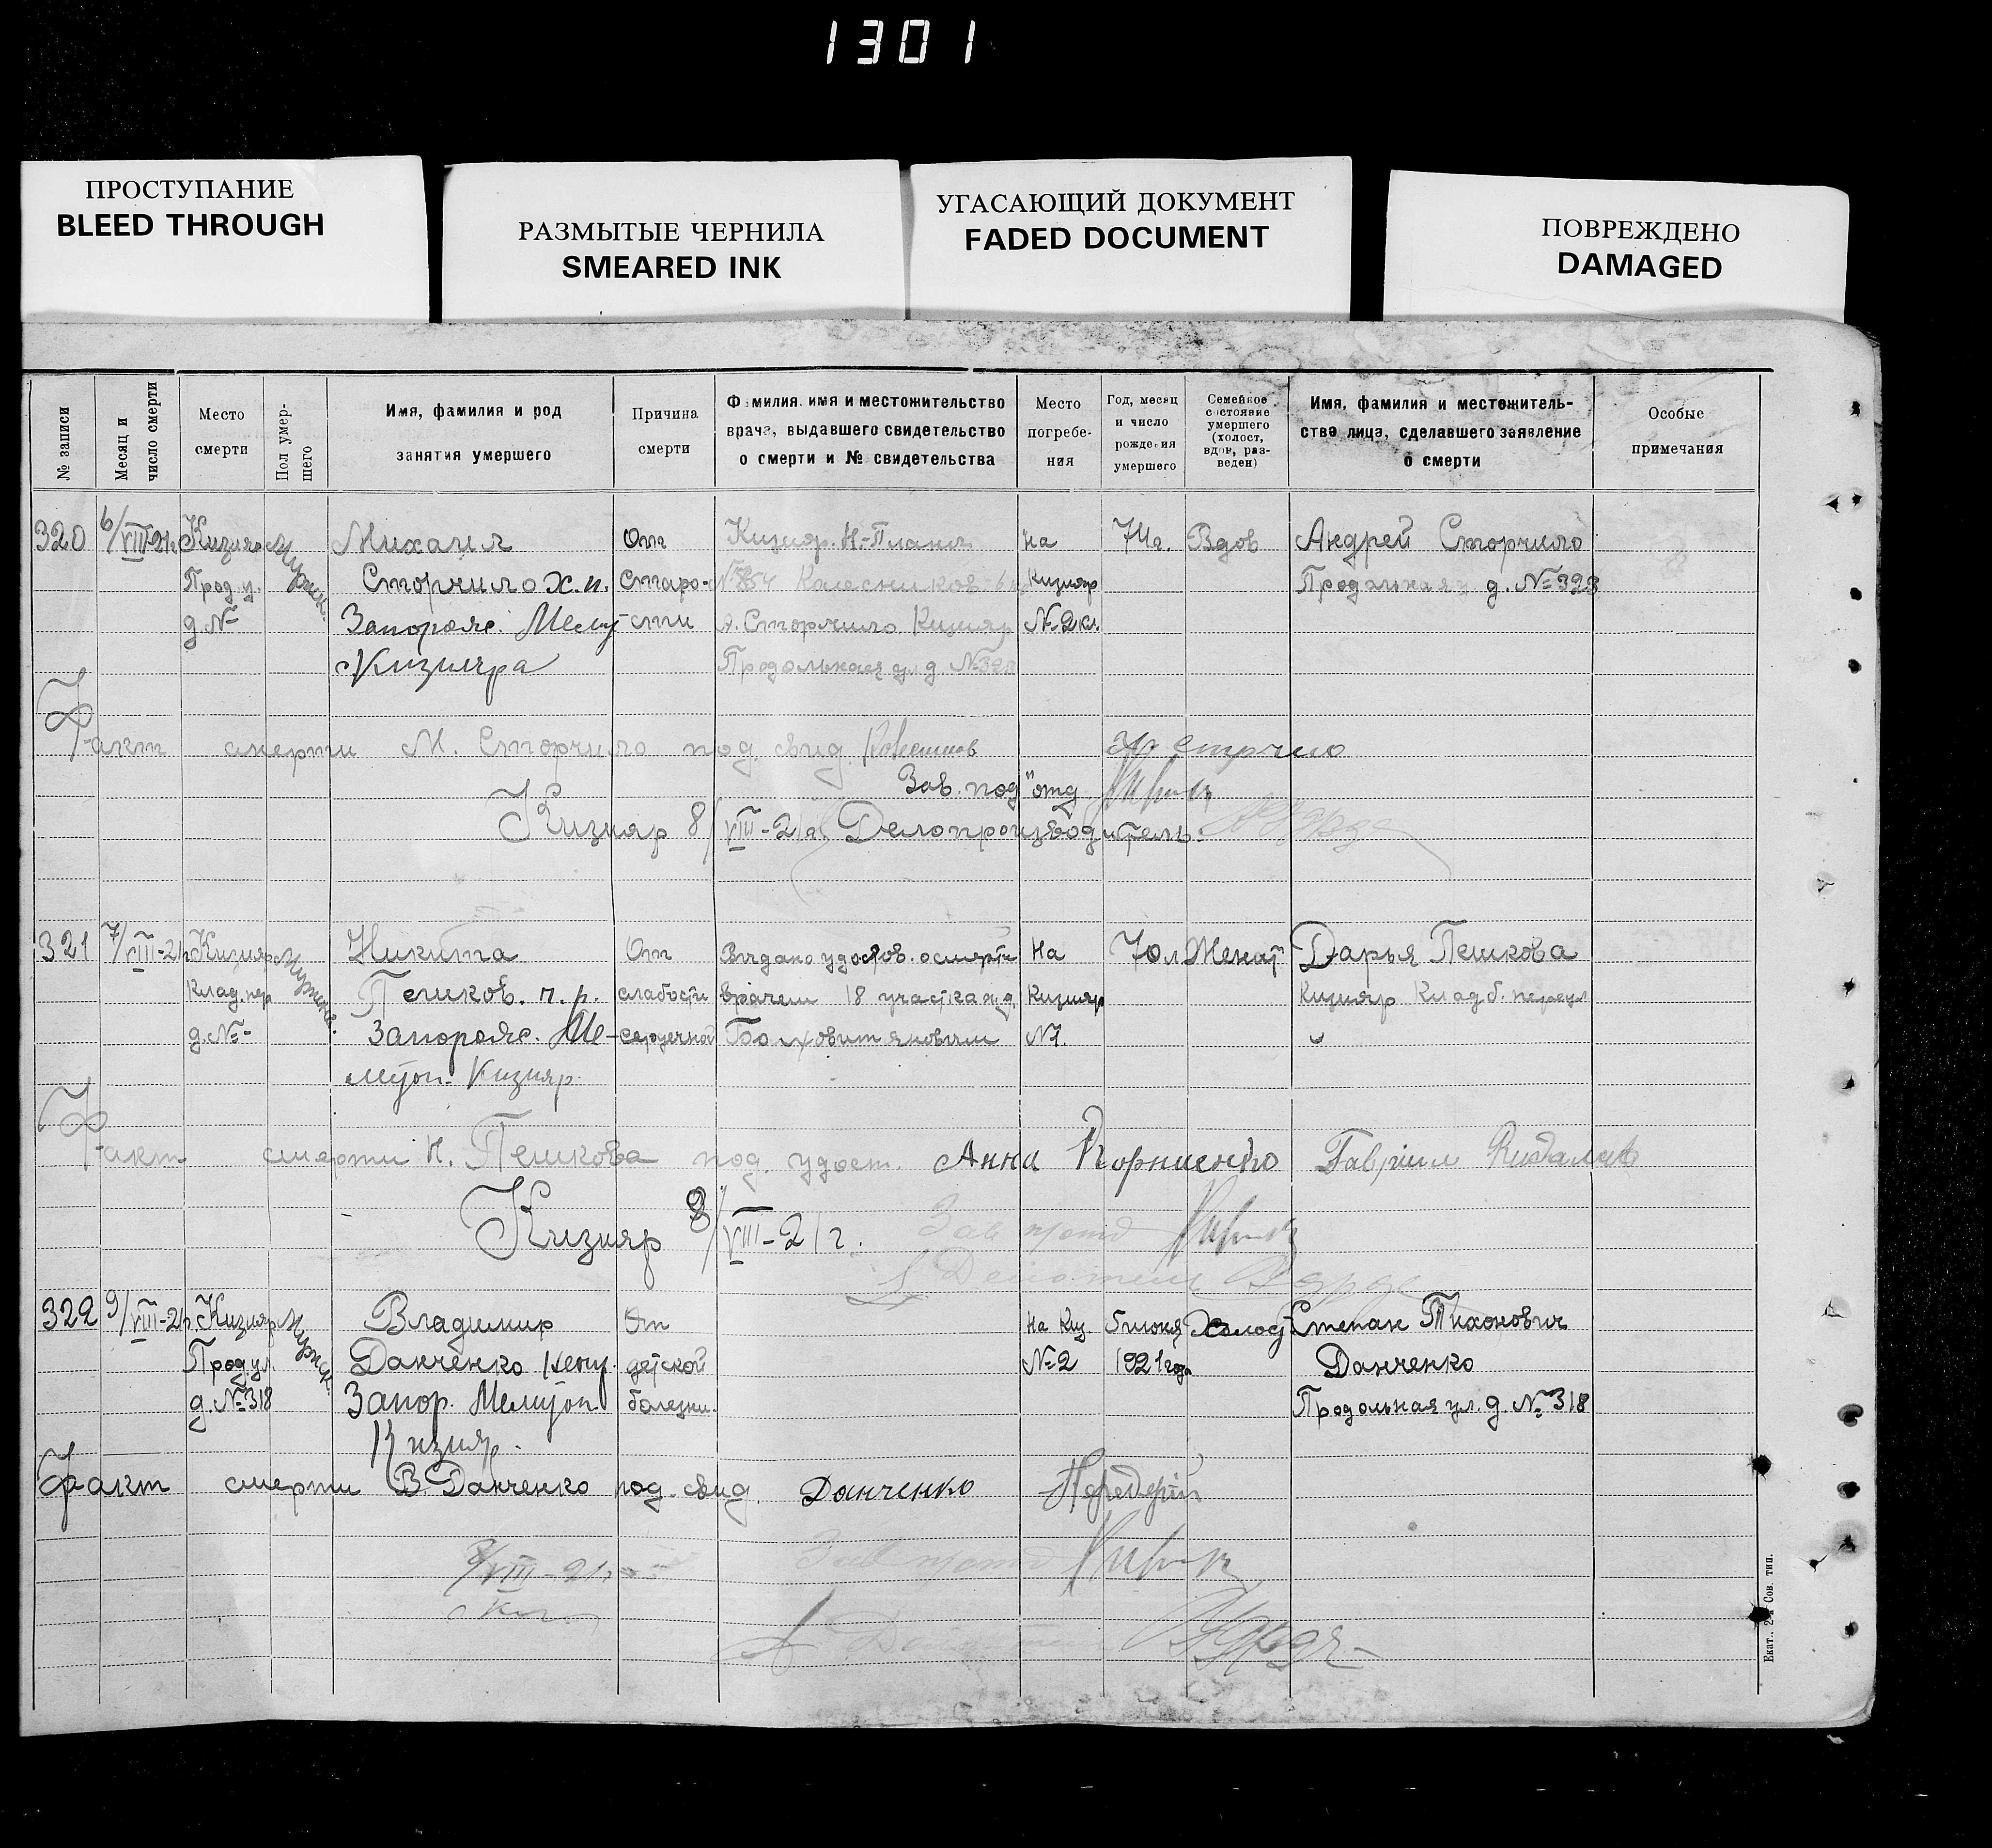 1301
ПРОСТУПАНИЕ
BLEED THROUGH
РАЗМЫТЫЕ ЧЕРНИЛА
SMEARED INK
УГАСАЮЩИЙ ДОКУМЕНТ
FADED DOCUMENT
ПОВРЕЖДЕНО
DAMAGED
№ записи
Месяц и
число смерти
Место
смерти
Пол умер-
шего
Имя, фамилия и род
занятия умершего
Причина
смерти
Фамилия, имя и местожительство
врача, выдавшего свидетельство
о смерти и № свидетельства
Место
погребе-
ния
Год, месяц
и число
рождения
умершего
Семейное
состояние
умершего
(холост,
вдов, раз-
веден)
Имя, фамилия и местожитель-
ства лица, сделавшего заявление
о смерти
Особые
примечания
320
6/VIII-21г.
Кизияр
Прод. у.
д. №
Мужск.
Михаил
Сторчило х. п.
Запорож. Мелит
Кизияра
От
старо-
сти
Кизияр. Н.-Планы
Колесников
А. Сторчило Кизияр
Продольная ул д №328
На
Кизияр
№2 кл.
74г.
Вдов
Андрей Сторчило
Продольная у д. №328
Факт смерти М. Сторчило под. свид. Колесников
Зав. под"отд
Кизияр 8/VIII-21г. Делопроизводитель
321
7/VIII-21г
Кизияр
Клад. пер
д. №-
Мужск.
Никита
Пешков. ч. р.
Запорож. Ме-
литоп. Кизияр.
От
слабости
сердечной
Выдано удостов. о смерти
врачем 18 участка
Болховитяновым
На
Кизияр
№1.
70л
Женат
Дарья Пешкова
Кизияр Кладб. переул
Факт смерти Н. Пешкова под. удост. Анна Корниенко Гавриил
Кизияр 8/VIII-21г.
Зав
322
9/VIII-21г.
Кизияр
Прод ул
д. №318
Мужск.
Владимир
Данченко
Запор. Мелитоп
Кизияр.
От
детской
болезни.
На Киз.
№2
июня
1921 года
Холост
Степан Тихонович
Данченко
Продольная ул. д. №318
Факт смерти В. Данченко под. свид. Данченко Передерій
/VIII-21г.
Екат., 2-я Сов. тип.